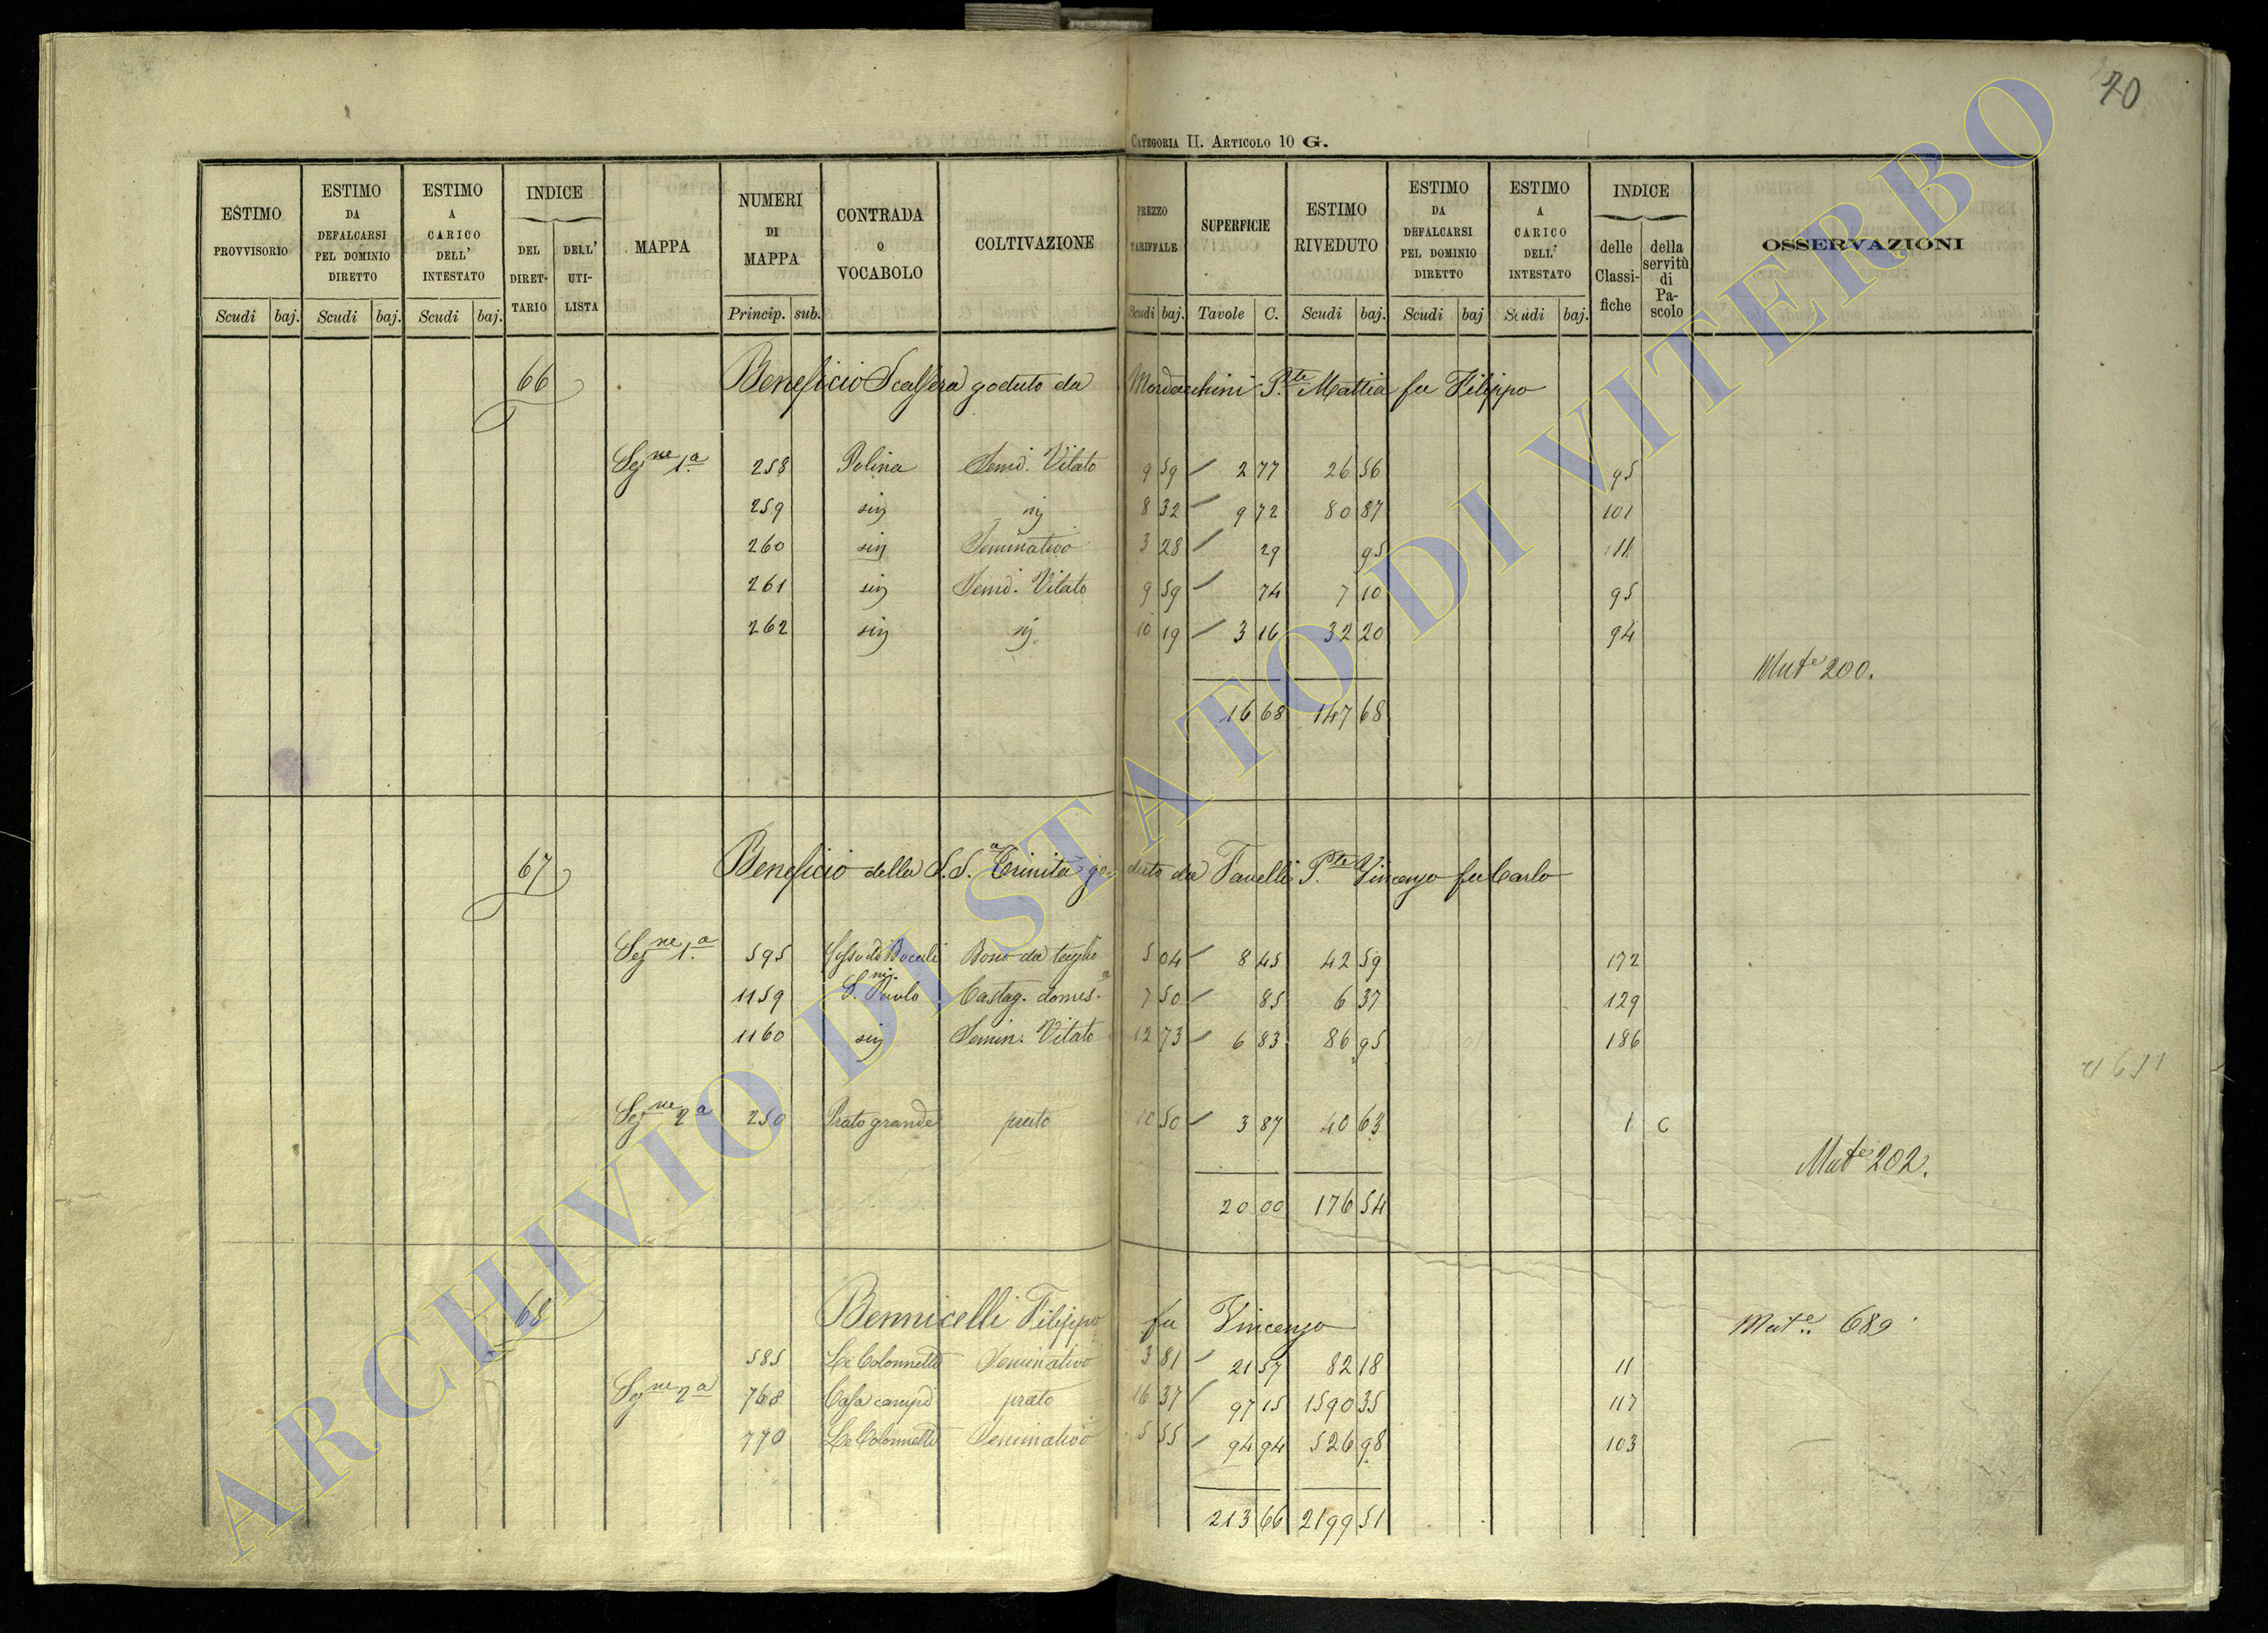 70
CATEGORIA II. ARTICOLO 10 G.
ESTIMO PROVVISORIO
ESTIMO DA DEFALCARSI PEL DOMINIO DIRETTO
ESTIMO A CARICO DELL' INTESTATO
INDICE
DEL DIRET-TARIO
DELL' UTI-LISTA
MAPPA
NUMERI DI MAPPA
CONTRADA O VOCABOLO
COLTIVAZIONE
PREZZO TARIFFALE
SUPERFICIE
ESTIMO RIVEDUTO
ESTIMO DA DEFALCARSI PEL DOMINIO DIRETTO
ESTIMO A CARICO DELL' INTESTATO
INDICE
delle Classi-fiche
della servitù di Pa-scolo
OSSERVAZIONI
Scudi baj. Scudi baj. Scudi baj. Princip. sub. Scudi baj. Tavole C. Scudi baj. Scudi baj Scudi baj.
66 Beneficio Scalfera goduto da Mordacchini P.te Mattia fu Filippo
Sez.ne 1.a 258 Polina Semi. Vitato 9 59 2 77 26 56 95
259 sig sig 8 32 9 72 80 87 101
260 sig Seminativo 3 28 29 95 11
261 sig Semi. Vitato 9 59 74 7 10 95
262 sig sig 10 19 3 16 32 20 94
Mut.e 200.
16 68 147 68
67 Beneficio della S.S.a Trinita goduto da Favelli P.te Vincenzo fu Carlo
Sez.ne 1.a 595 Bosco da taglio 5 04 8 45 42 59 172
1159 S. Paolo Castag. domes.a 7 50 85 6 37 129
1160 sig Semin. Vitato 12 73 6 83 86 95 186
Sez.ne 2.a 250 Prato grande prato 10 50 3 87 40 63 1 C
Mut.e 202.
20 00 176 54
68 Bennicelli Filippo fu Vincenzo Mut.e 689
585 Le Colonnette Seminativo 3 81 21 57 82 18 11
Sez.ne 2.a 768 Casa campo prato 16 37 97 15 1590 35 117
770 Le Colonnette Seminativo 5 55 94 94 526 98 103
213 66 2199 51
ARCHIVIO DI STATO DI VITERBO